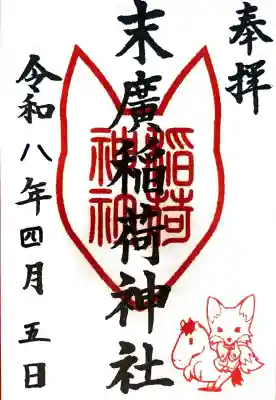 奉拝
末廣稲荷神社
稲荷
神社
令和八年四月五日